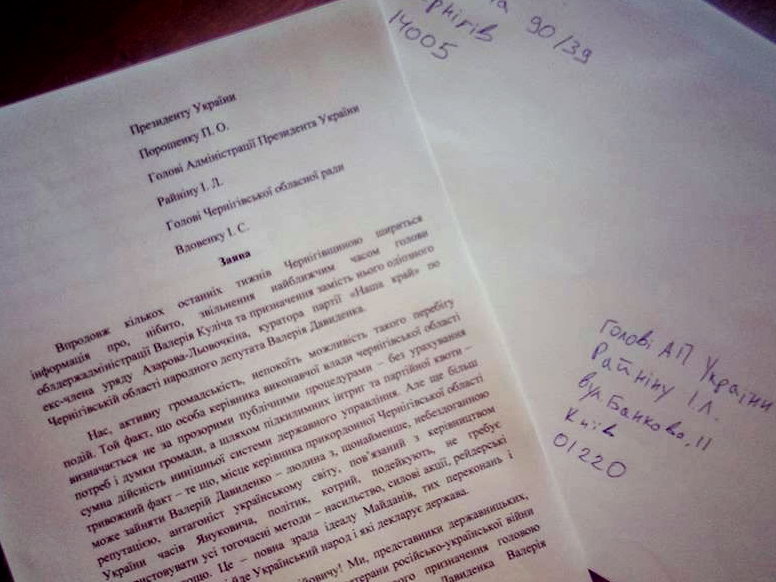 90/39
14005
Президенту України
Порошенку П. О.
Голові Адміністрації Президента України
Райніну І. Л.
Голові Чернігівської обласної ради
Вдовенку І. С.
Заява
Впродовж кількох останніх тижнів Чернігівщиною шириться
інформація про, нібито, звільнення найближчим часом голови
облдержадміністрації Валерія Куліча та призначення замість нього одіозного
екс-члена уряду Азарова-Льовочкіна, куратора партії «Наша край» по
Чернігівській області народного депутата Валерія Давиденка.
Нас, активну громадськість, непокоїть можливість такого перебігу
подій. Той факт, що особа керівника виконавчої влади чернігівської області
визначається не за прозорими публічними процедурами – без урахування
потреб і думки громади, а шляхом підкилимних інтриг та партійної квоти –
сумна дійсність нинішньої системи державного управління. Але ще більш
тривожний факт – те що, місце керівника прикордонної Чернігівської області
може зайняти Валерій Давиденко – людина з, щонайменше, небездоганною
репутацією, антагоніст українському світу, пов'язаний з керівництвом
України часів Януковича, політик, котрий, подейкують, не гребує
використовувати усі тогочасні методи – насильство, силові акції, рейдерські
тощо. Це – повна зрада ідеалу Майданів, тих переконань і
йде Український народ і які декларує держава.
йовичу! Ми, представники державницьких,
ветерани російсько-української війни
призначення головою
Давиденка Валерія
Голові АП України
Райніну І Л.
вул Банкова, 11
Київ
01220